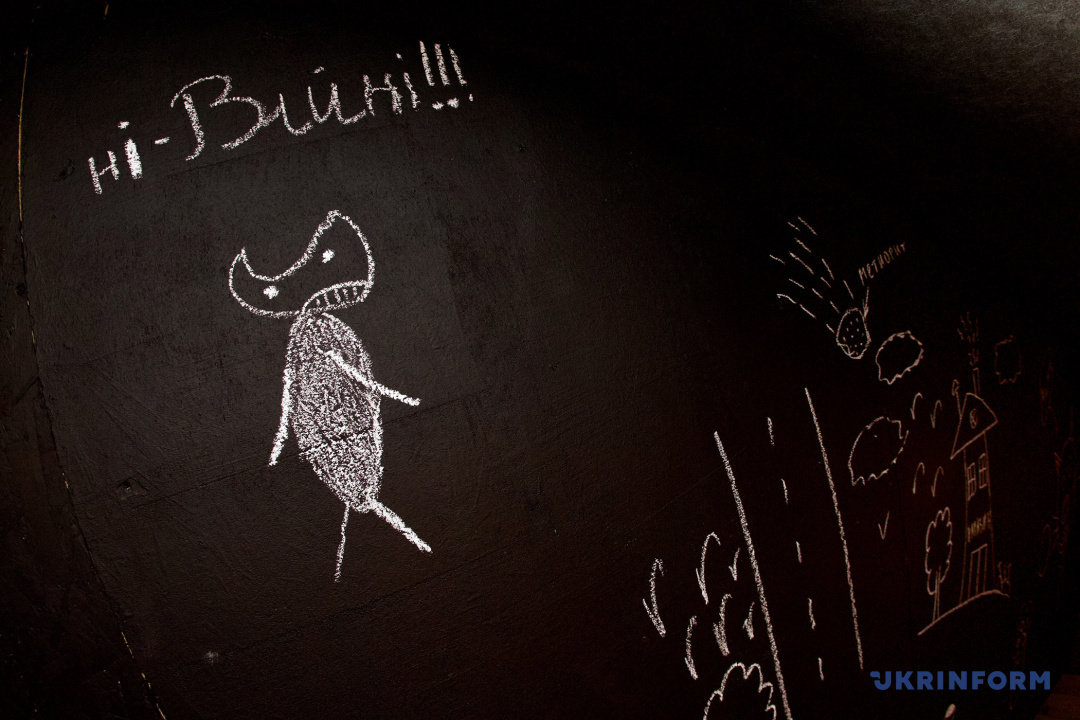 ні-Війні!!!
метиорит
UKRINFORM